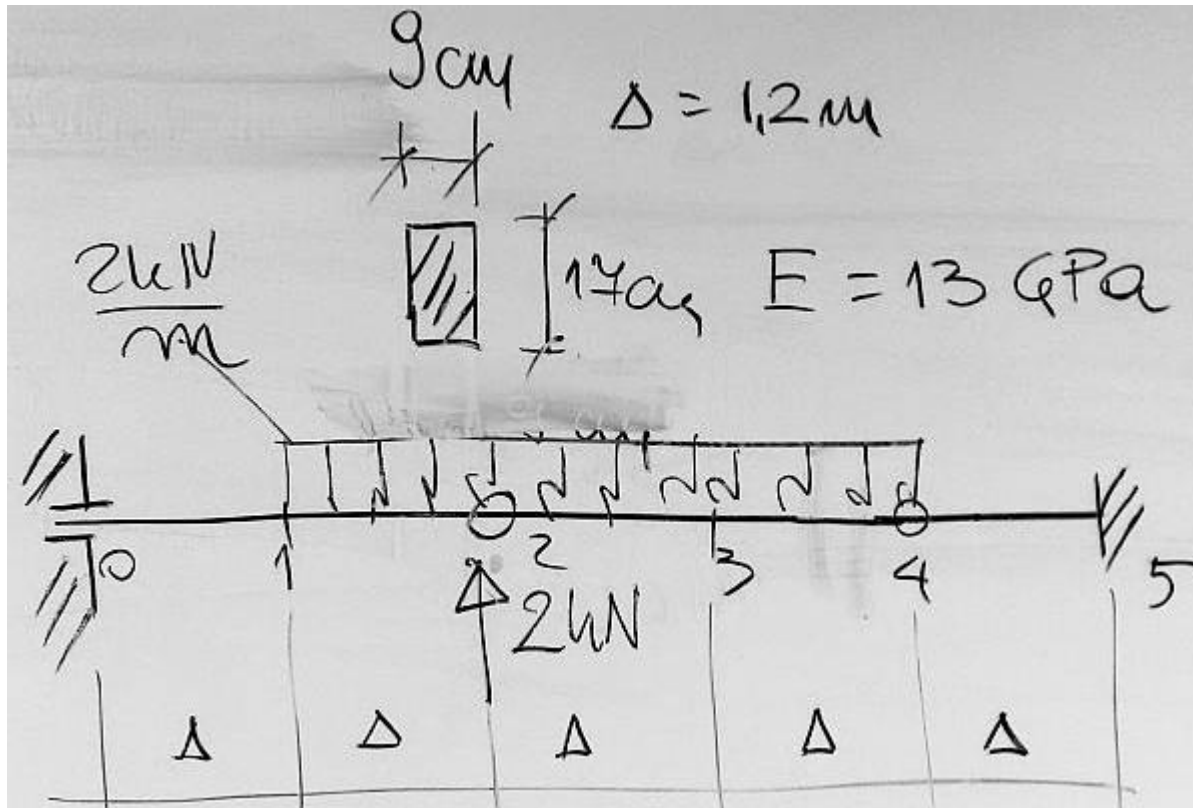 9cm
Δ = 1,2m
2kN
m
17cm
E = 13 GPa
0
1
2
3
4
5
2kN
Δ Δ Δ Δ Δ